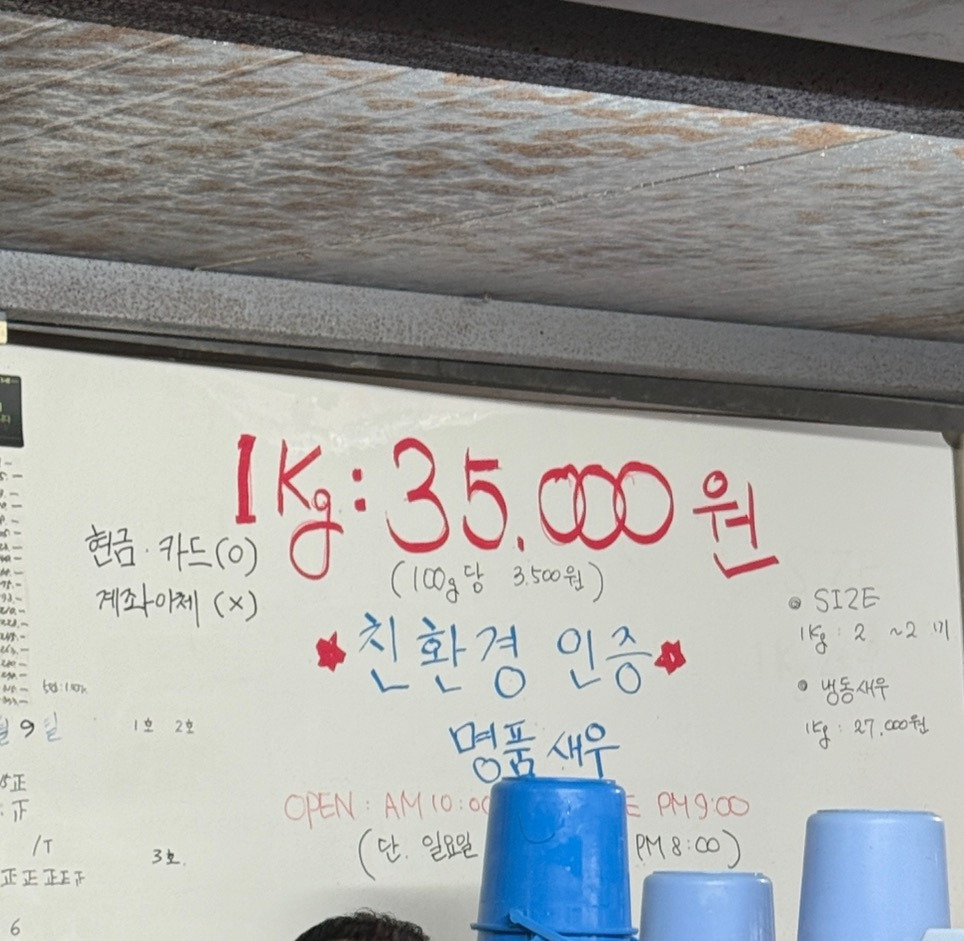 1Kg: 35.000원
(100g당 3.500원)
현금 · 카드(O)
계좌이체 (X)
★친환경 인증★
명품 새우
OPEN : AM 10:00 PM 9:00
(단. 일요일 PM 8:00)
SIZE
1Kg : 2 ~2 미
냉동새우
1Kg : 27,000원
9일
1호 2호
3호.
正
正
/T
正正正正
6